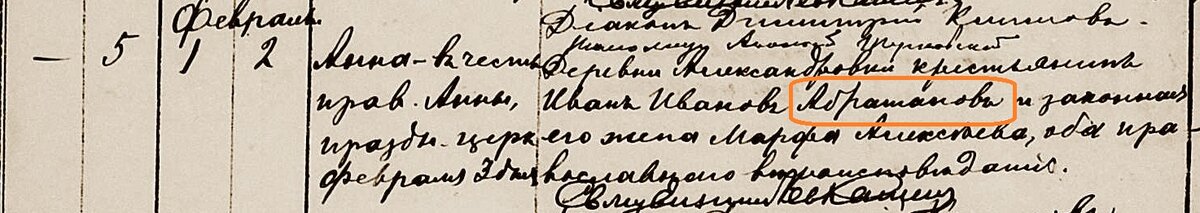 Февраль
Діаконъ Димитрій
— 5 1 2 Анна – въ честь Деревни Александровки крестьянинъ
прав. Анны, Иванъ Ивановъ Абрамановъ и законная
праздн. церк. его жена Марфа Алексѣева, оба пра-
Февраля 3 дня вославнаго вѣроисповѣданія.